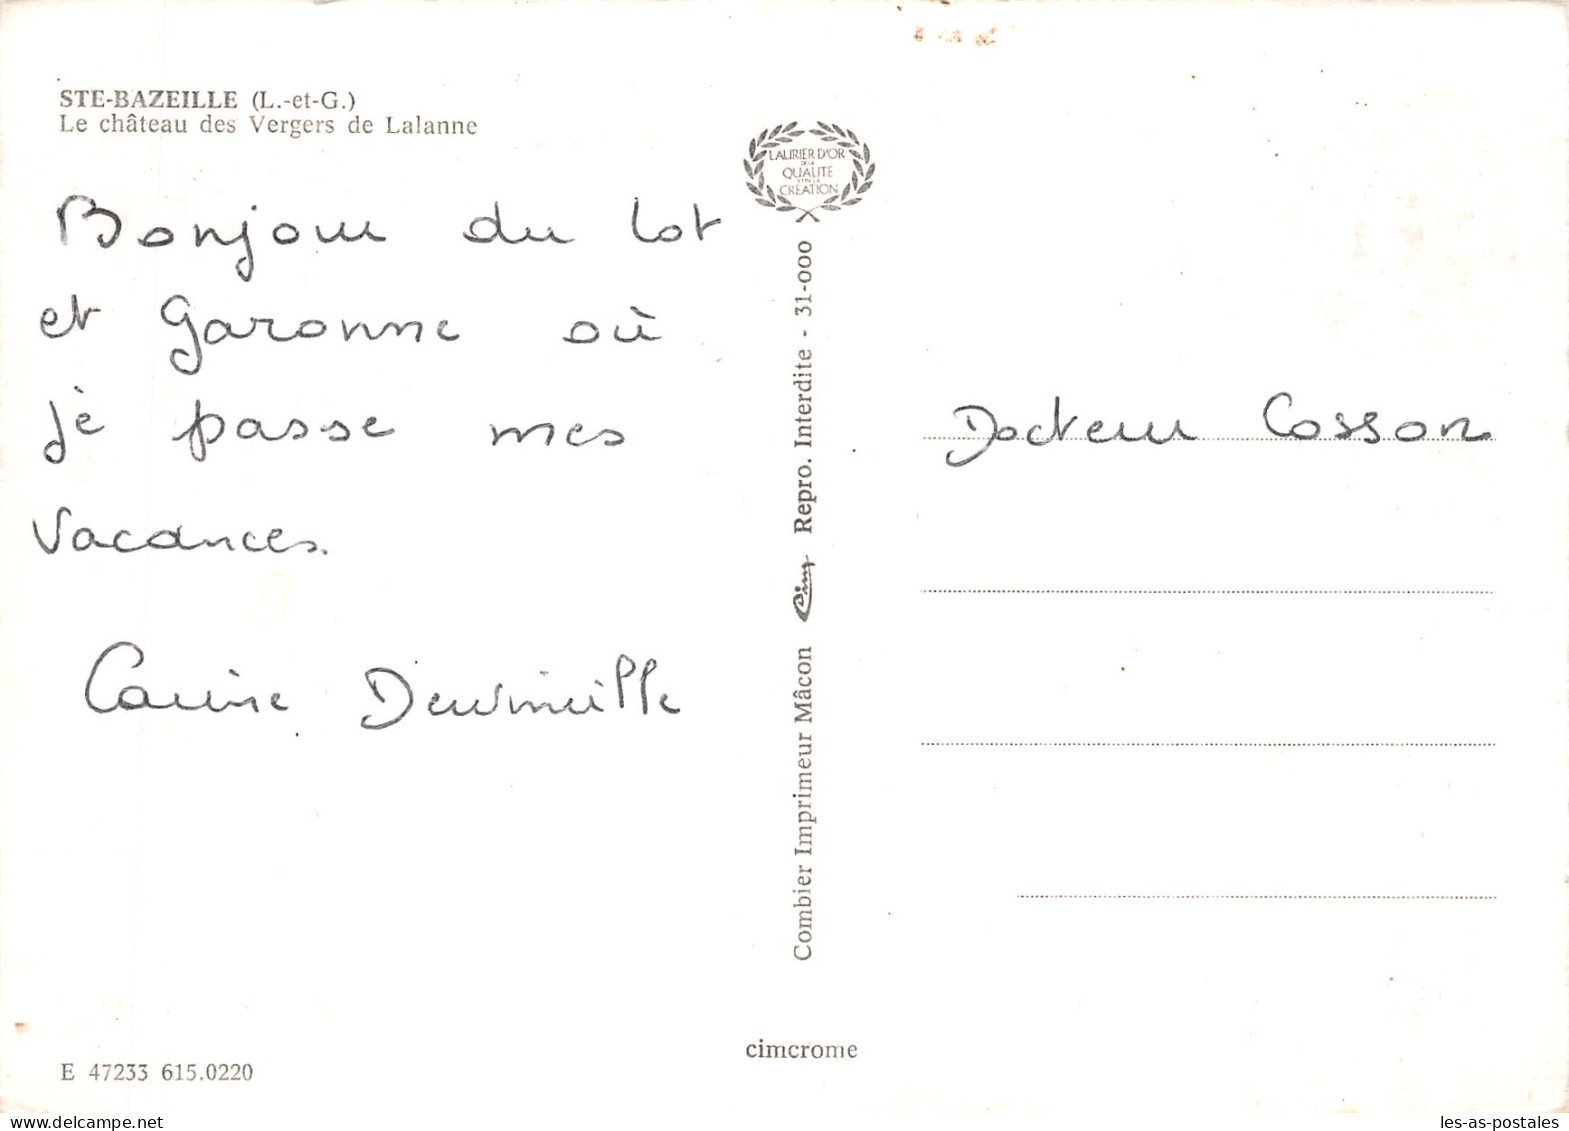 STE-BAZEILLE (L.-et-G.)
Le château des Vergers de Lalanne
Bonjour du lot
et Garonne où
je passe mes
vacances.
Carine
LAURIER D'OR
DE LA
QUALITE
ET DE LA
CREATION
Combier Imprimeur Mâcon Cim Repro. Interdite - 31-000
Docteur Cosson
cimcrome
E 47233 615.0220
les-as-postales